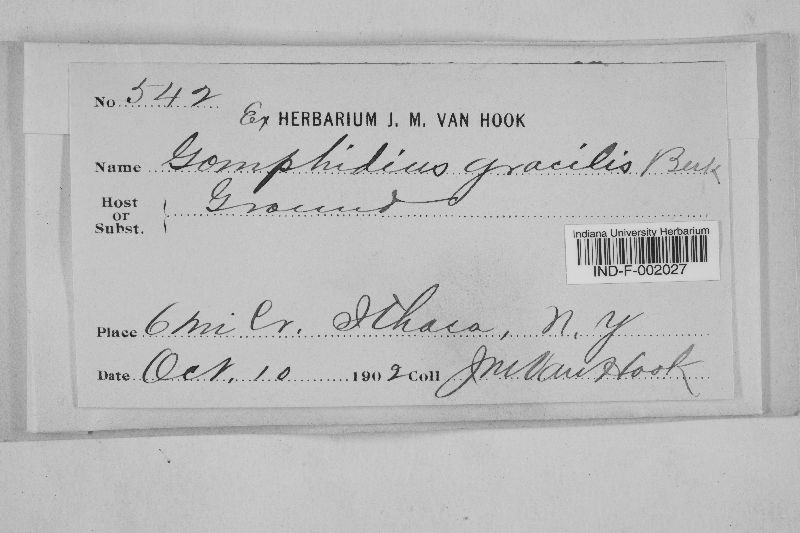 No 542
Ex HERBARIUM J. M. VAN HOOK
Name Gomphidius gracilis Berk
Host or Subst. Ground
Indiana University Herbarium
IND-F-002027
Place 6 mi Cr. Ithaca, N. Y
Date Oct. 10 1902 Coll J M Van Hook